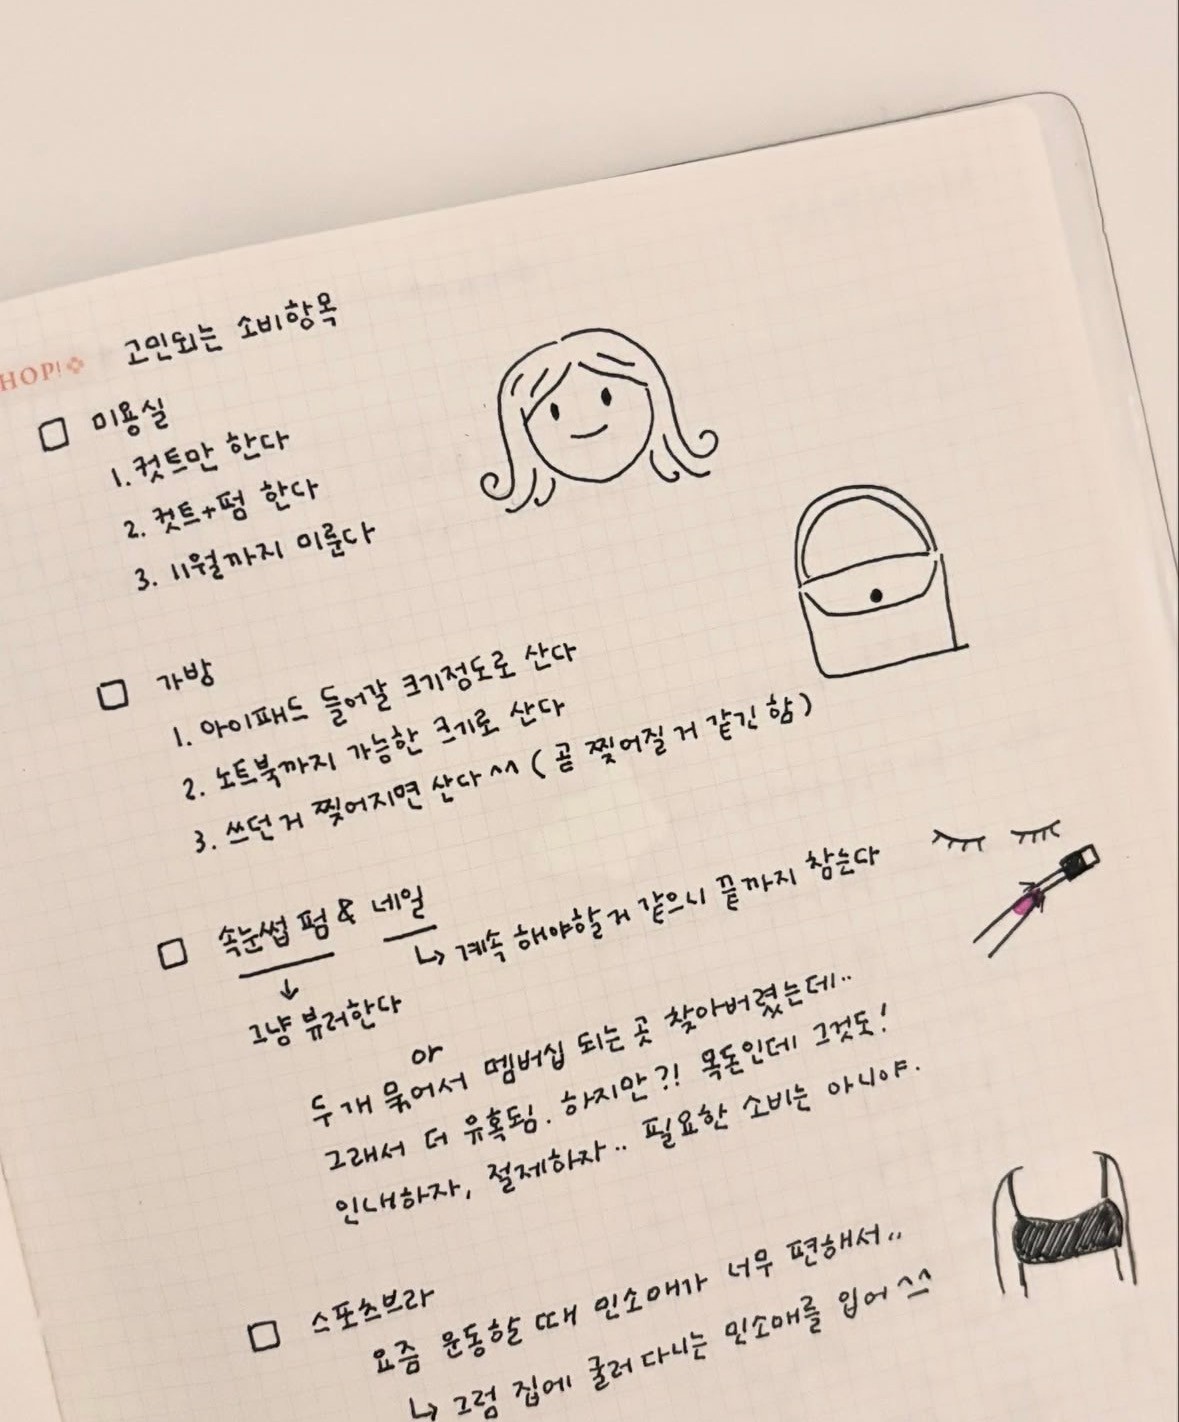 HOP!
고민되는 소비항목
□ 미용실
1. 컷트만 한다
2. 컷트+펌 한다
3. 11월까지 미룬다
□ 가방
1. 아이패드 들어갈 크기정도로 산다
2. 노트북까지 가능한 크기로 산다
3. 쓰던거 찢어지면 산다^^ (곧 찢어질거 같긴 함)
□ 속눈썹 펌 & 네일
↳ 계속 해야할거 같으니 끝까지 참는다
↓
그냥 뷰러한다
or
두개 묶어서 멤버십 되는 곳 찾아버렸는데..
그래서 더 유혹됨. 하지만?! 목돈인데 그것도!
인내하자, 절제하자.. 필요한 소비는 아니야.
□ 스포츠브라
요즘 운동할 때 민소매가 너무 편해서..
↳ 그럼 집에 굴러다니는 민소매를 입어^^